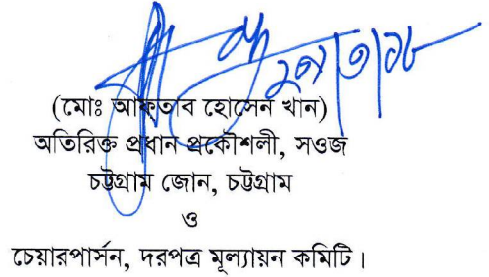 ২৯/৩/১৮
(মোঃ আফতাব হোসেন খান)
অতিরিক্ত প্রধান প্রকৌশলী, সওজ
চট্টগ্রাম জোন, চট্টগ্রাম
ও
চেয়ারপার্সন, দরপত্র মূল্যায়ন কমিটি।